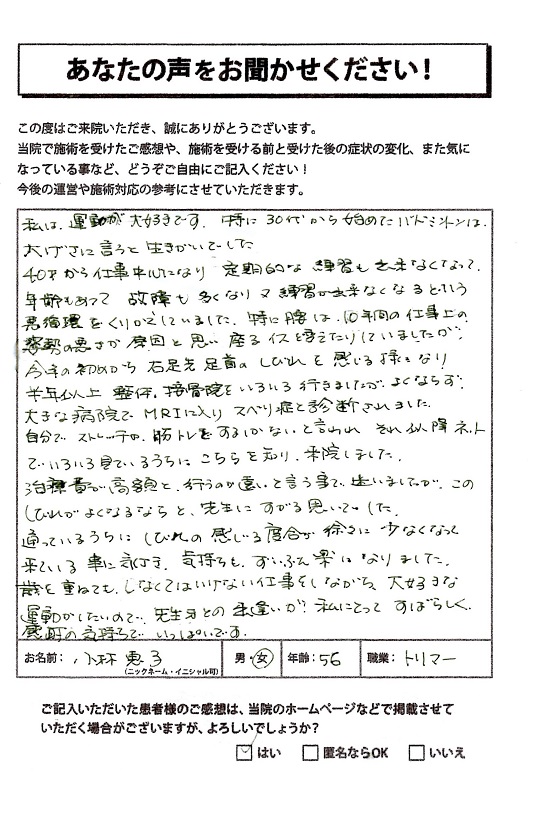 あなたの声をお聞かせください！
この度はご来院いただき、誠にありがとうございます。
当院で施術を受けたご感想や、施術を受ける前と受けた後の症状の変化、また気に
なっている事など、どうぞご自由にご記入ください！
今後の運営や施術対応の参考にさせていただきます。
私は、運動が大好きです。特に30代から始めたバドミントンは、
大げさに言うと生きがいでした
40才から仕事中心になり 定期的な練習も出来なくなって、
年齢もあって 故障も多くなり又練習が出来なくなるという
悪循環をくりかえしていました。特に腰は、10年間の仕事上の
姿勢の悪さが原因と思い 座るイスを考えたりしていましたが、
今年の初めから右足先足首のしびれを感じる様になり
半年以上 整体、接骨院をいろいろ行きましたが よくならず、
大きな病院でMRIに入り スベリ症と診断されました。
自分で ストレッチや、筋トレをするしかないと言われ それ以降ネット
でいろいろ見ているうちに こちらを知り、来院しました。
治療費が高額と、行くのが遠いと言う事で 迷いましたが、この
しびれがよくなるならと、先生にすがる思いでした。
通っているうちに しびれの感じる度合が 徐々に少なくなって
来ている事に気付き、気持ちも、ずいぶん楽になりました。
歳を重ねても、しなくてはいけない仕事をしながら、大好きな
運動がしたいので、先生との出逢いが 私にとって すばらしく、
感謝の気持ちで いっぱいです。
お名前: 小林 恵子 (ニックネーム・イニシャル可) 男・女 年齢:56 職業: トリマー
ご記入いただいた患者様のご感想は、当院のホームページなどで掲載させて
いただく場合がございますが、よろしいでしょうか？
はい 匿名ならOK いいえ